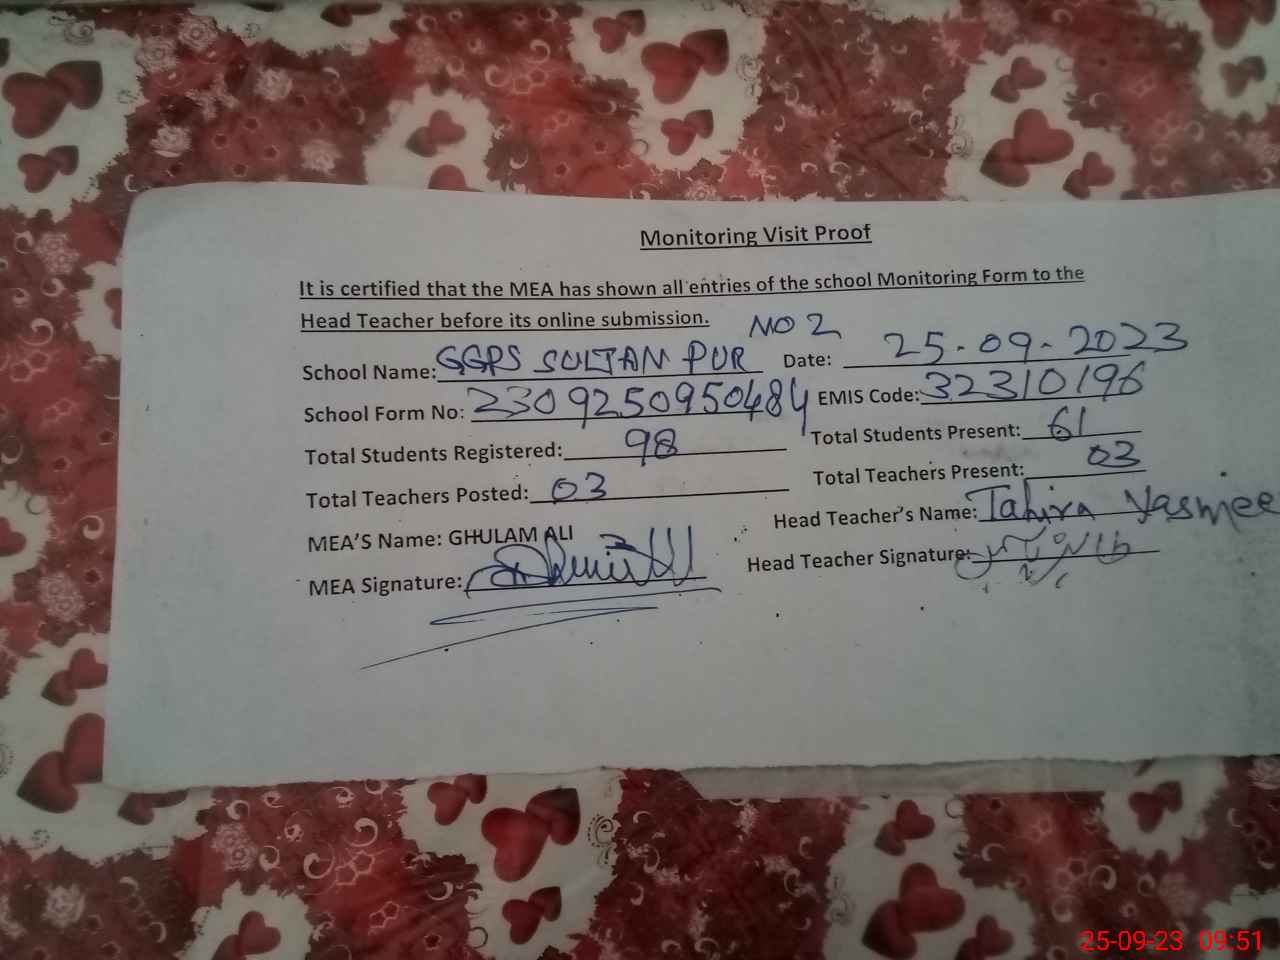 Monitoring Visit Proof
It is certified that the MEA has shown all entries of the school Monitoring Form to the
Head Teacher before its online submission.
School Name: GGPS SULTAN PUR NO 2 Date: 25-09-2023
School Form No: 2309250950484 EMIS Code: 32310196
Total Students Registered: 98 Total Students Present: 61
Total Teachers Posted: 03 Total Teachers Present: 03
MEA'S Name: GHULAM ALI Head Teacher's Name: Tahira Yasmee
MEA Signature: Head Teacher Signature:
25-09-23 09:51